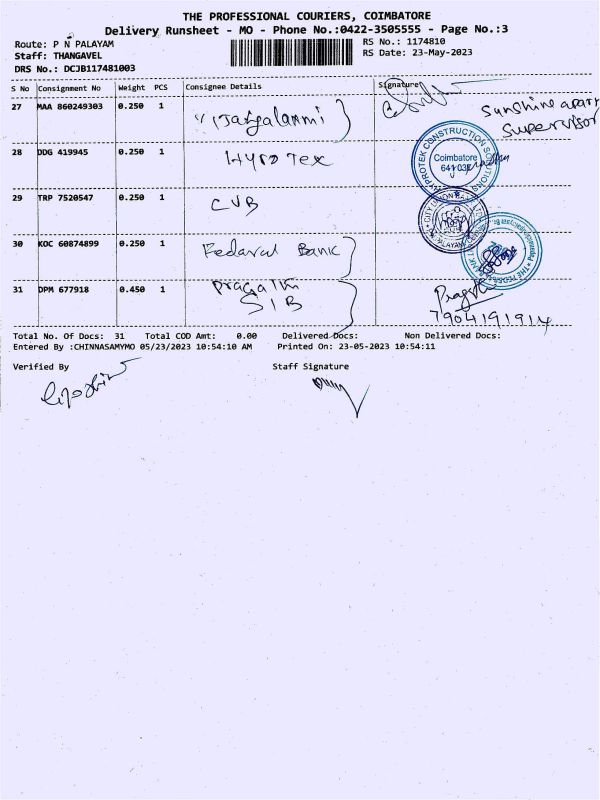 THE PROFESSIONAL COURIERS, COIMBATORE
Delivery Runsheet - MO - Phone No.:0422-3505555 - Page No.:3
Route: P N PALAYAM
RS No.: 1174810
Staff: THANGAVEL
RS Date: 23-May-2023
DRS No.: DCJB117481003
S No Consignment No Weight PCS Consignee Details Signature
27 MAA 860249303 0.250 1
Sunshine apart
Supervisor
28 DDG 419945 0.250 1 Hyro Tex
HYPROTEK CONSTRUCTION SOLUTIONS
Coimbatore
29 TRP 7520547 0.250 1 CUB
CITY UNION BANK
30 KOC 60874899 0.250 1 Fedaral Bank
THE FEDERAL BANK
31 DPM 677918 0.450 1 Pragathi
SIB
7904191914
Total No. Of Docs: 31 Total COD Amt: 0.00 Delivered Docs: Non Delivered Docs:
Entered By :CHINNASAMYMO 05/23/2023 10:54:10 AM Printed On: 23-05-2023 10:54:11
Verified By Staff Signature